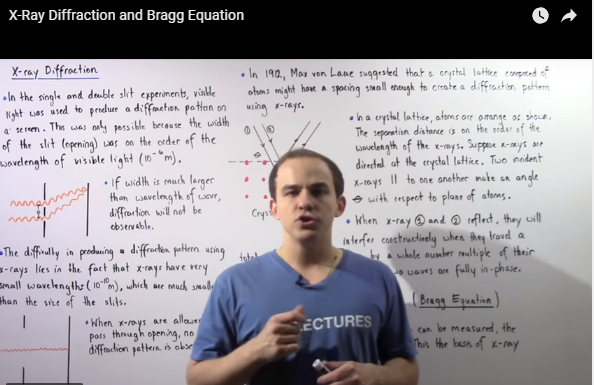 X-Ray Diffraction and Bragg Equation
X-ray Diffraction
• In the single and double slit experiments, visible
light was used to produce a diffraction pattern on
a screen. This was only possible because the width
of the slit (opening) was on the order of the
wavelength of visible light (10⁻⁶m).
• If width is much larger
than wavelength of wave,
diffraction will not be
observable.
• The difficulty in producing a diffraction pattern using
x-rays lies in the fact that x-rays have very
small wavelengths (10⁻¹⁰m), which are much smalle
than the size of the slits.
• When x-rays are allowe
pass through opening, no
diffraction pattern is obse
• In 1912, Max von Laue suggested that a crystal lattice composed of
atoms might have a spacing small enough to create a diffraction pattern
using x-rays.
① ②
θ
Cryst
• In a crystal lattice, atoms are arrange as shown.
The separation distance is on the order of the
wavelength of the x-rays. Suppose x-rays are
directed at the crystal lattice. Two incident
x-rays || to one another make an angle
θ with respect to plane of atoms.
• When x-ray ① and ② reflect, they will
interfere constructively when they travel a
by a whole number multiple of their
so waves are fully in-phase.
total
(Bragg Equation)
can be measured, the
This the basis of x-ray
LECTURES